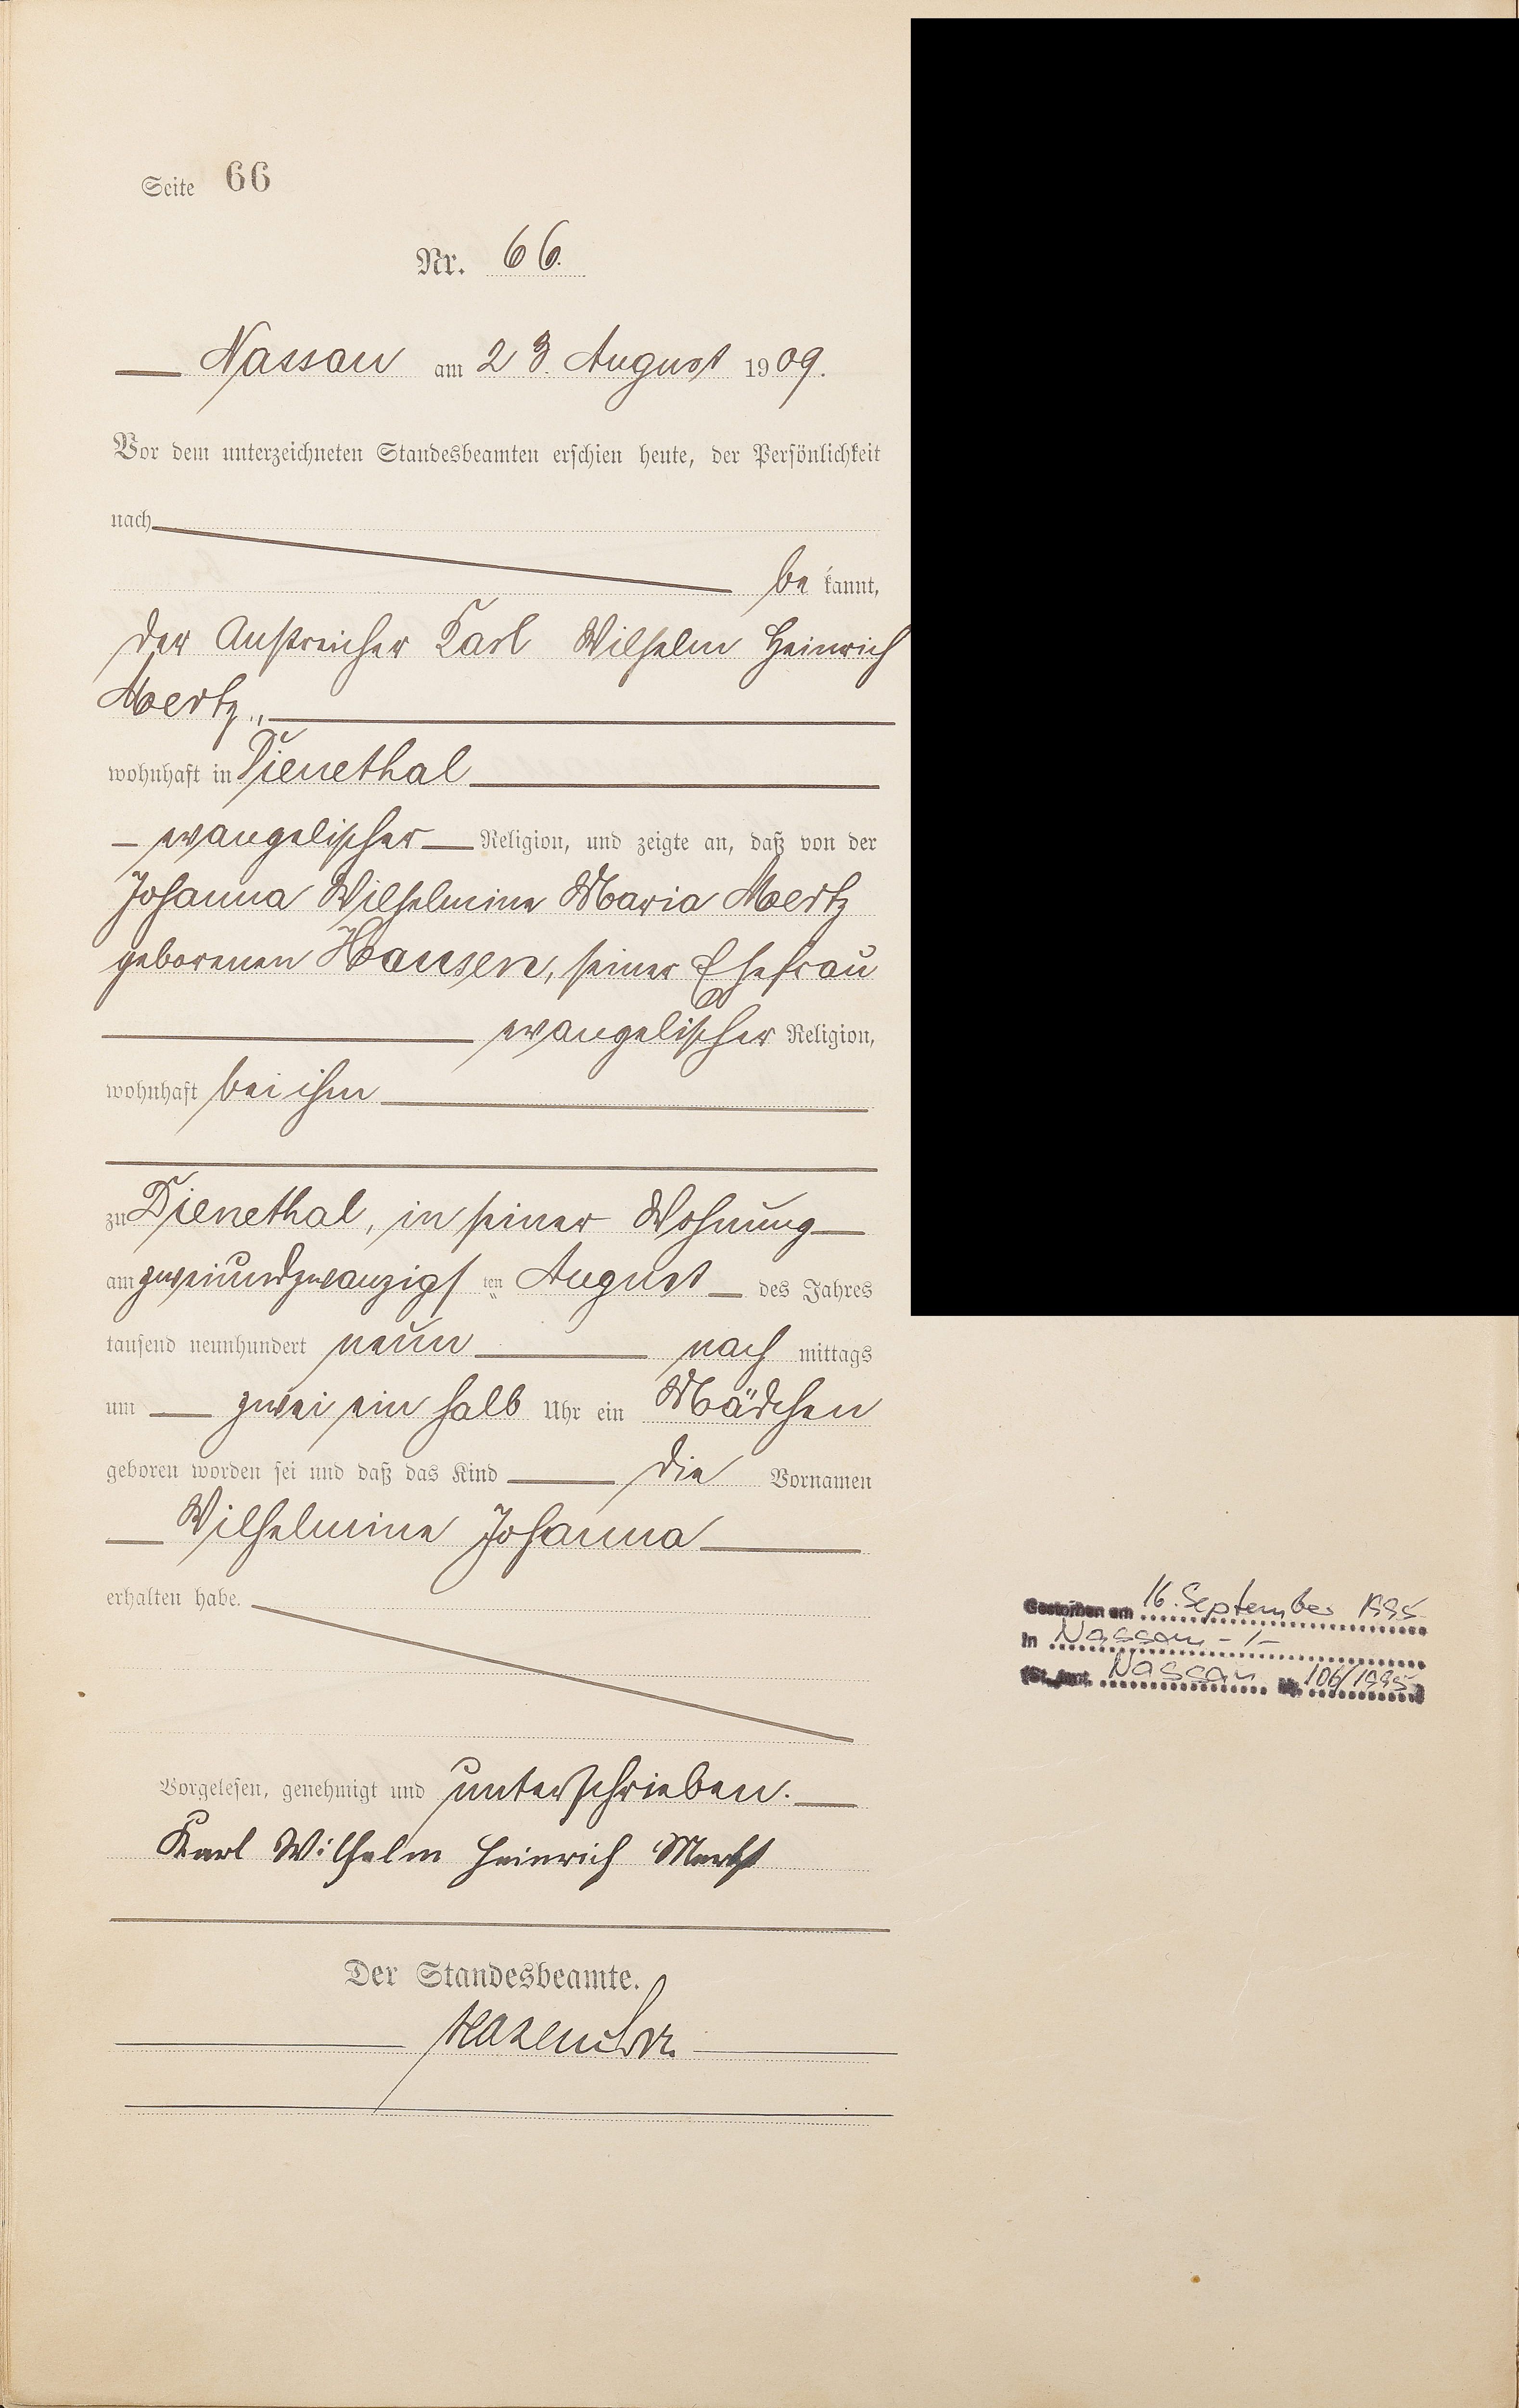 Seite 66
Nr. 66.
Nassau am 23. August 1909.
Vor dem unterzeichneten Standesbeamten erschien heute, der Persönlichkeit
nach
be kannt,
der Anstreicher Karl Wilhelm Heinrich
Mertz,
wohnhaft in Dienethal
evangelischer Religion, und zeigte an, daß von der
Johanna Wilhelmine Maria Mertz
geborenen Hansen, seiner Ehefrau
evangelischer Religion,
wohnhaft bei ihm
zu Dienethal, in seiner Wohnung
am zweiundzwanzigsten August des Jahres
tausend neunhundert neun nach mittags
um zwei ein halb Uhr ein Mädchen
geboren worden sei und daß das Kind die Vornamen
Wilhelmine Johanna
erhalten habe.
Vorgelesen, genehmigt und unterschrieben.
Karl Wilhelm Heinrich Mertz
Der Standesbeamte.
Gestorben am 16. September 1995
in Nassau
(St.Amt Nassau Nr. 106/1995)